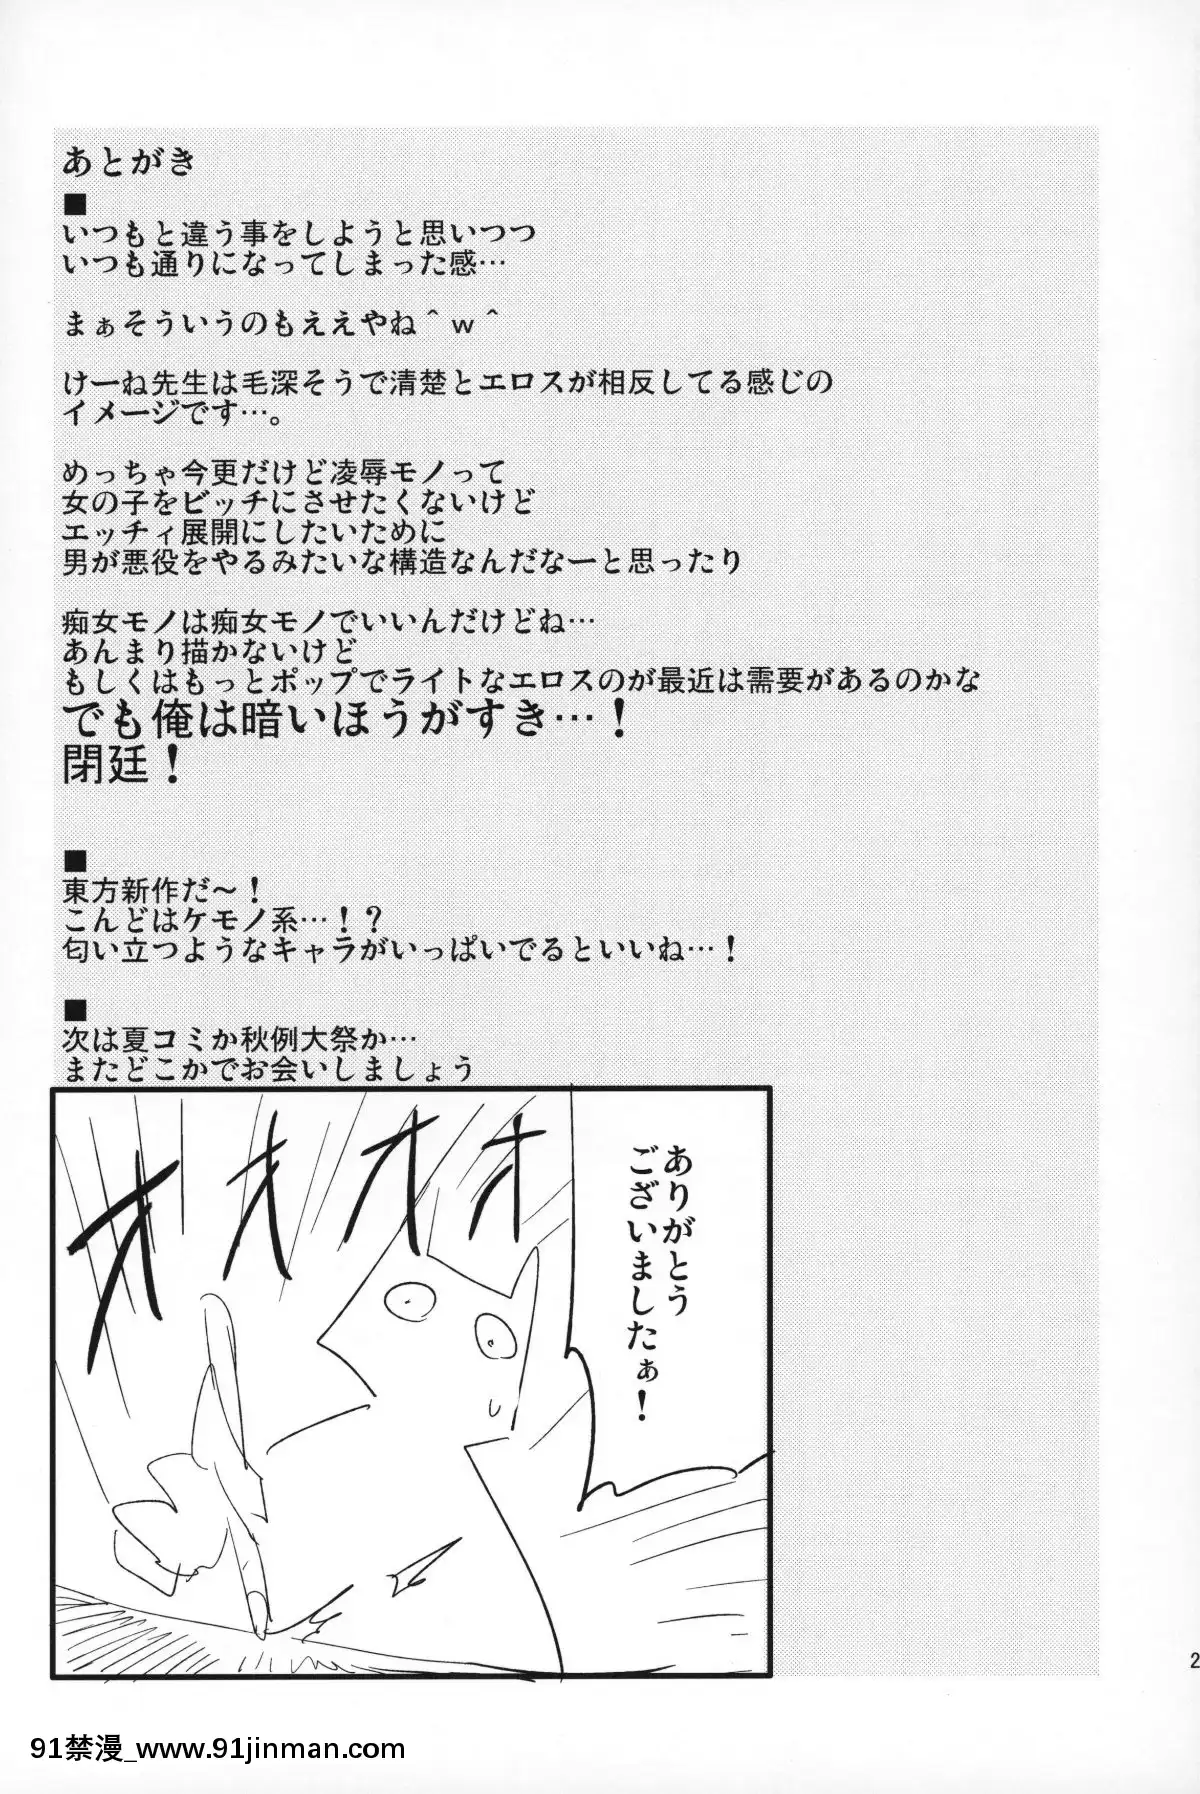 あとがき
■
いつもと違う事をしようと思いつつ
いつも通りになってしまった感…
まぁそういうのもええやね＾ｗ＾
けーね先生は毛深そうで清楚とエロスが相反してる感じの
イメージです…。
めっちゃ今更だけど凌辱モノって
女の子をビッチにさせたくないけど
エッチィ展開にしたいために
男が悪役をやるみたいな構造なんだなーと思ったり
痴女モノは痴女モノでいいんだけどね…
あんまり描かないけど
もしくはもっとポップでライトなエロスのが最近は需要があるのかな
でも俺は暗いほうがすき…！
閉廷！
■
東方新作だ～！
こんどはケモノ系…！？
匂い立つようなキャラがいっぱいでるといいね…！
■
次は夏コミか秋例大祭か…
またどこかでお会いしましょう
ありがとう
ございましたぁ！
オオオオ
2
91禁漫_www.91jinman.com